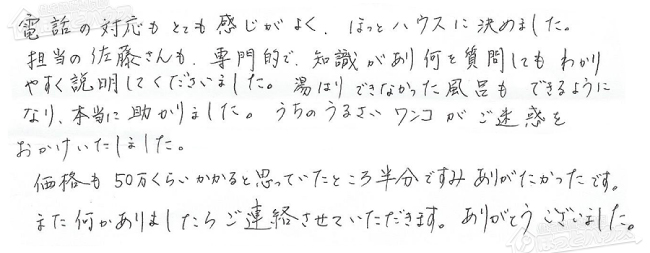 電話の対応もとても感じがよく、ほっとハウスに決めました。
担当の佐藤さんも、専門的で、知識があり何を質問してもわかり
やすく説明してくださいました。湯はりできなかった風呂もできるように
なり、本当に助かりました。うちのうるさいワンコがご迷惑を
おかけいたしました。
価格も50万くらいかかると思っていたところ半分ですみありがたかったです。
また何かありましたらご連絡させていただきます。ありがとうございました。